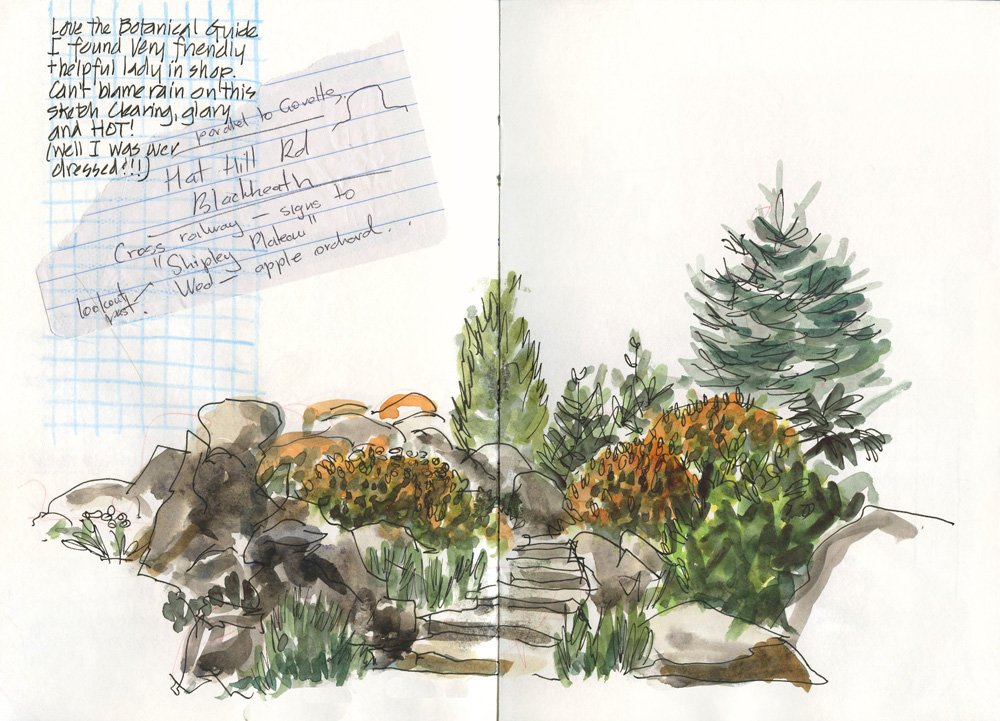 Love the Botanical Guide
I found Very friendly
+helpful lady in shop.
Can't blame rain on this
sketch Clearing, glary
and HOT!
(Well I was over
dressed?!!)
parallel to Govetts.
Hat Hill Rd
Blackheath
Cross railway — signs to
"Shipley Plateau"
Wed — apple orchard...
lookout
past.